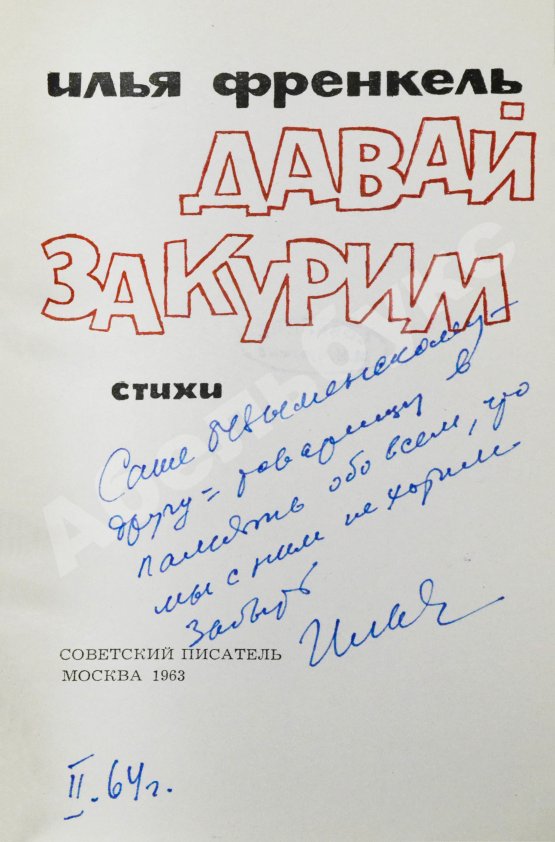 илья френкель
ДАВАЙ
ЗАКУРИМ
стихи
Саше Безыменскому –
другу = товарищу в
память обо всем, что
мы с ним не хотим
забыть
Илья
СОВЕТСКИЙ ПИСАТЕЛЬ
МОСКВА 1963
II. 64 г.